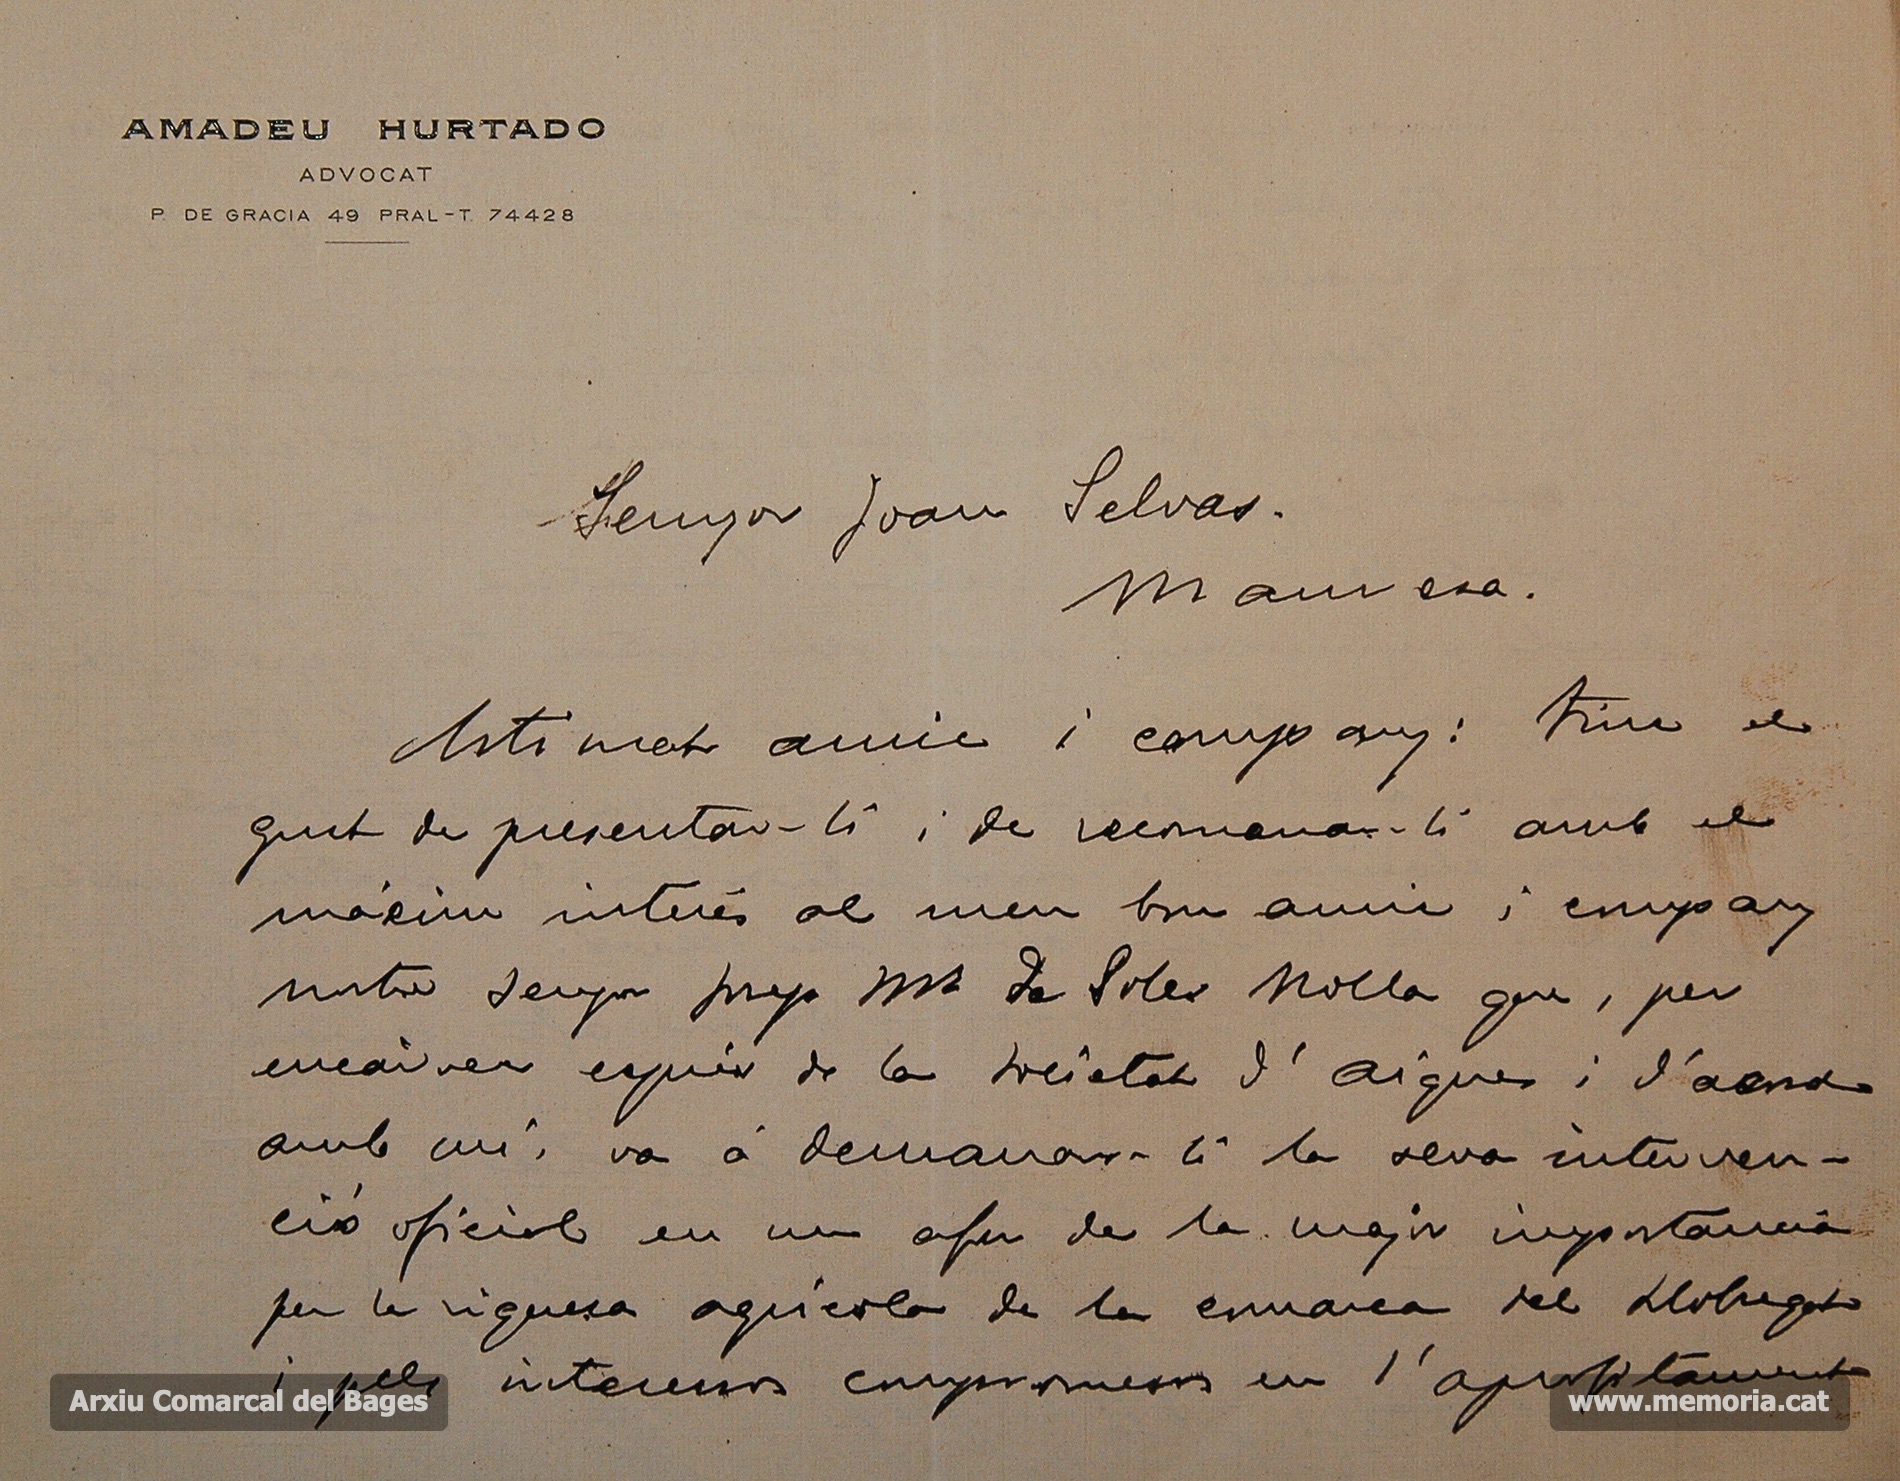 AMADEU HURTADO
ADVOCAT
P. DE GRACIA 49 PRAL-T. 74428
Senyor Joan Selvas.
Manresa.
Estimat amic i company: Tinc el
gust de presentar-li i de recomanar-li amb el
màxim interés al meu bon amic i company
nostre senyor Josep Mª de Soler Nolla que, per
encàrrec exprés de la Societat d'Aigues i d'acord
amb mi, va á demanar-li la seva interven-
ció oficial en un afer de la major importancia
per la riquesa agrícola de la comarca del Llobregat
i pels interessos compromesos en l'aprofitament
Arxiu Comarcal del Bages
www.memoria.cat